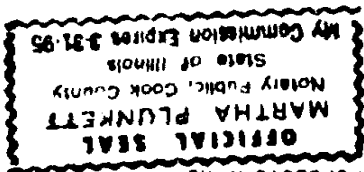 OFFICIAL SEAL
MARTHA PLUNKETT
Notary Public, Cook County
State of Illinois
My Commission Expires 3-31-95